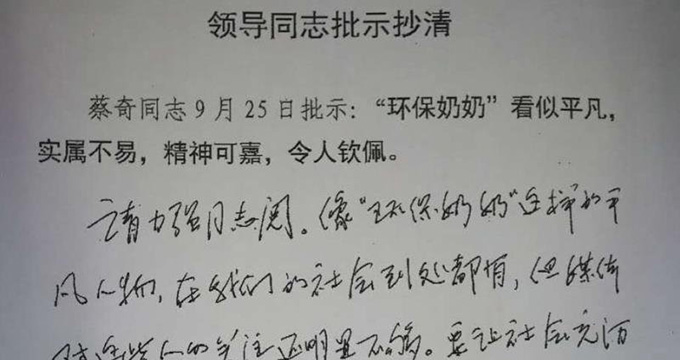 领导同志批示抄清
蔡奇同志9月25日批示：“环保奶奶”看似平凡，
实属不易，精神可嘉，令人钦佩。
请力强同志阅。像“环保奶奶”这样的平
凡人物，在我们的社会到处都有，但媒体
对这些人的关注还明显不够。要让社会充满